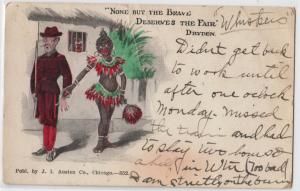 "NONE BUT THE BRAVE
DESERVES THE FAIR"
DRYDEN.
"Whiskers"
Didnt get back
to work until
after one oclock
Monday. Missed
the train and had
to stay two hours
in Wtn (Too bad
I am strictly on the bum
Publ. by J. I. Austen Co., Chicago.—352.